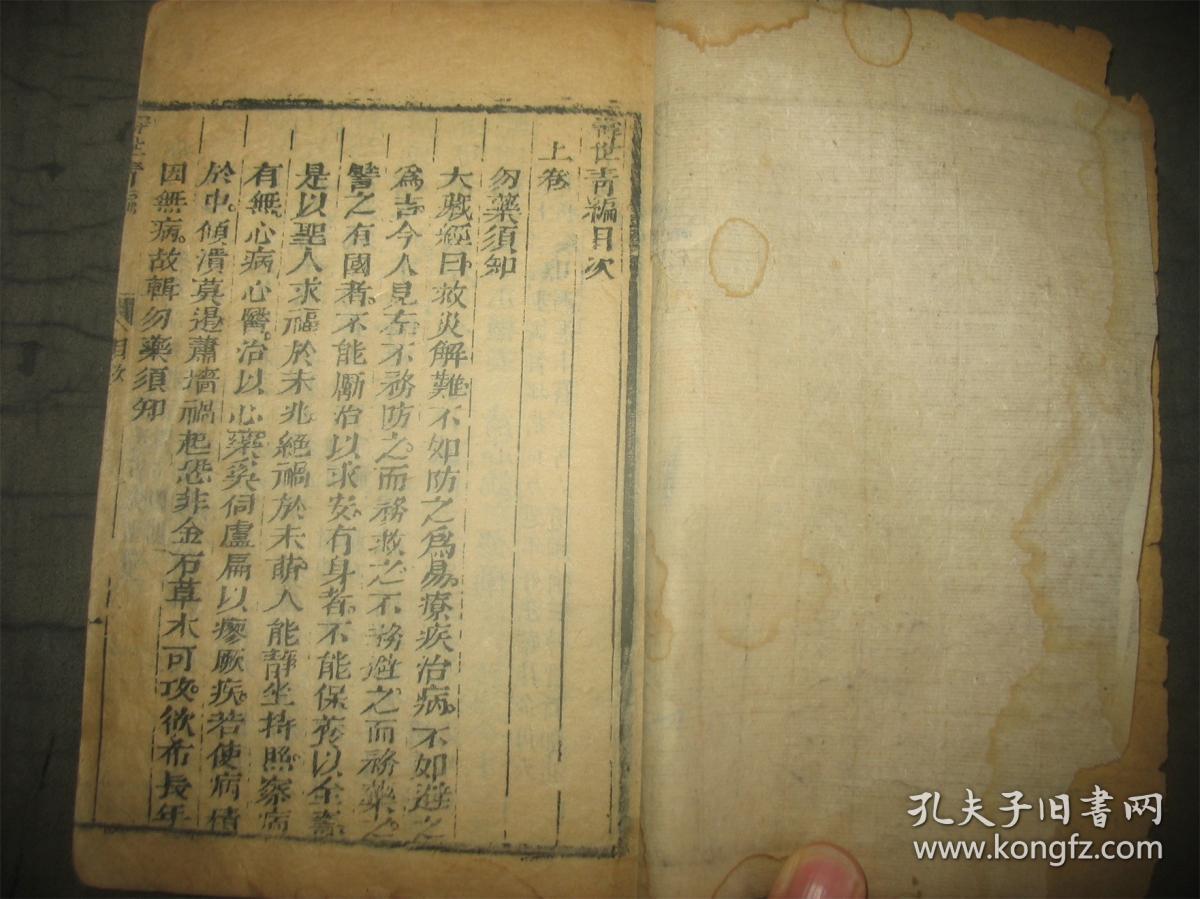 壽世青編目次
上卷
勿藥須知
大藏經曰救災解難不如防之爲易。療疾治病。不如避之
爲吉今人見左不務防之。而務救之不務避之而務藥之
譬之有國者。不能厲治以求安。有身者。不能保養以全壽
是以聖人求福於未兆絕禍於未萌人能靜坐持照察病
有無心病心醫。治以心藥奚伺盧扁以瘳厥疾。若使病積
於中。傾潰莫遏蕭墻禍起恐非金石草木可攻。欲希長年
因無病。故輯勿藥須知
壽世青編
目次
孔夫子旧书网
www.kongfz.com